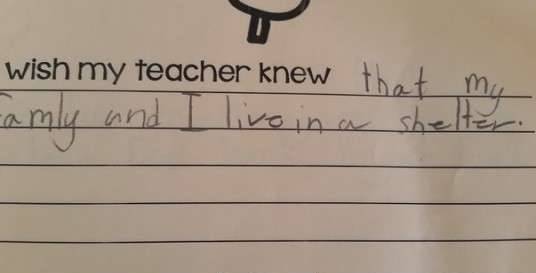 wish my teacher knew that my
famly and I live in a shelter.